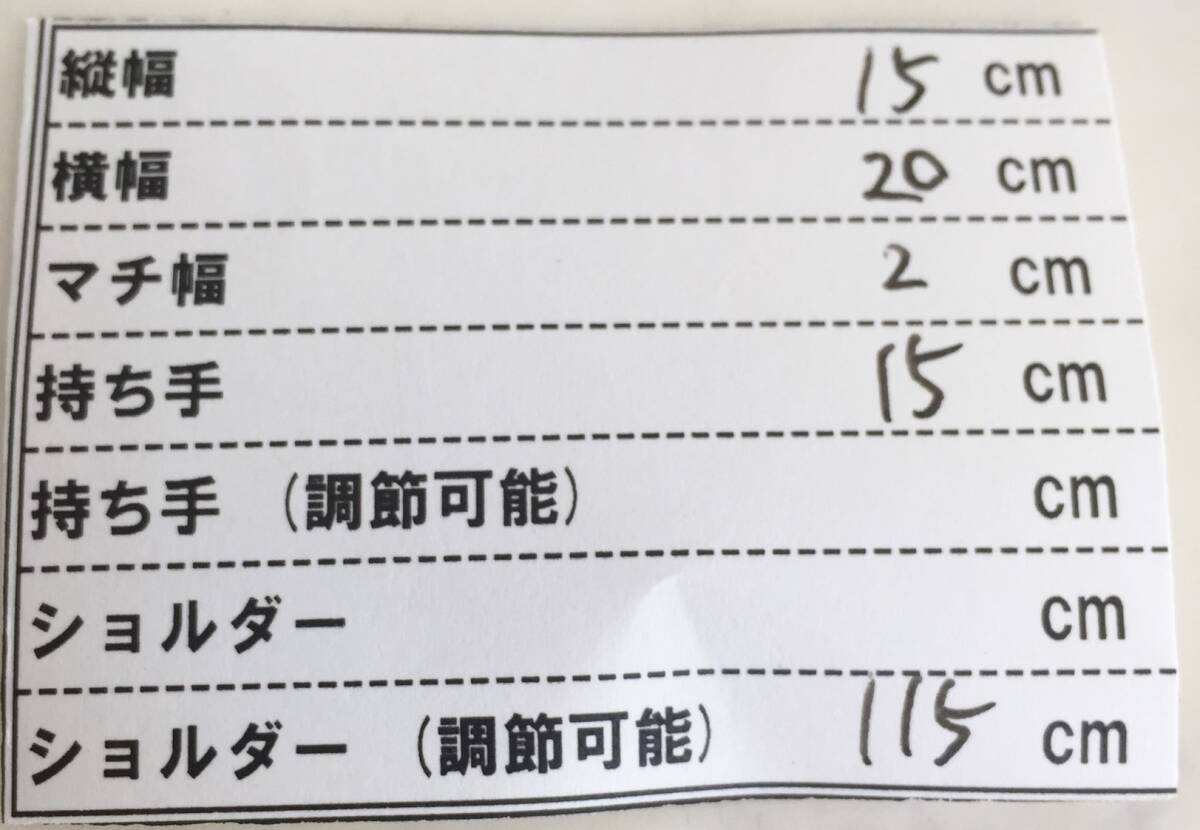 縦幅 15 cm
横幅 20 cm
マチ幅 2 cm
持ち手 15 cm
持ち手 (調節可能) cm
ショルダー cm
ショルダー (調節可能) 115 cm